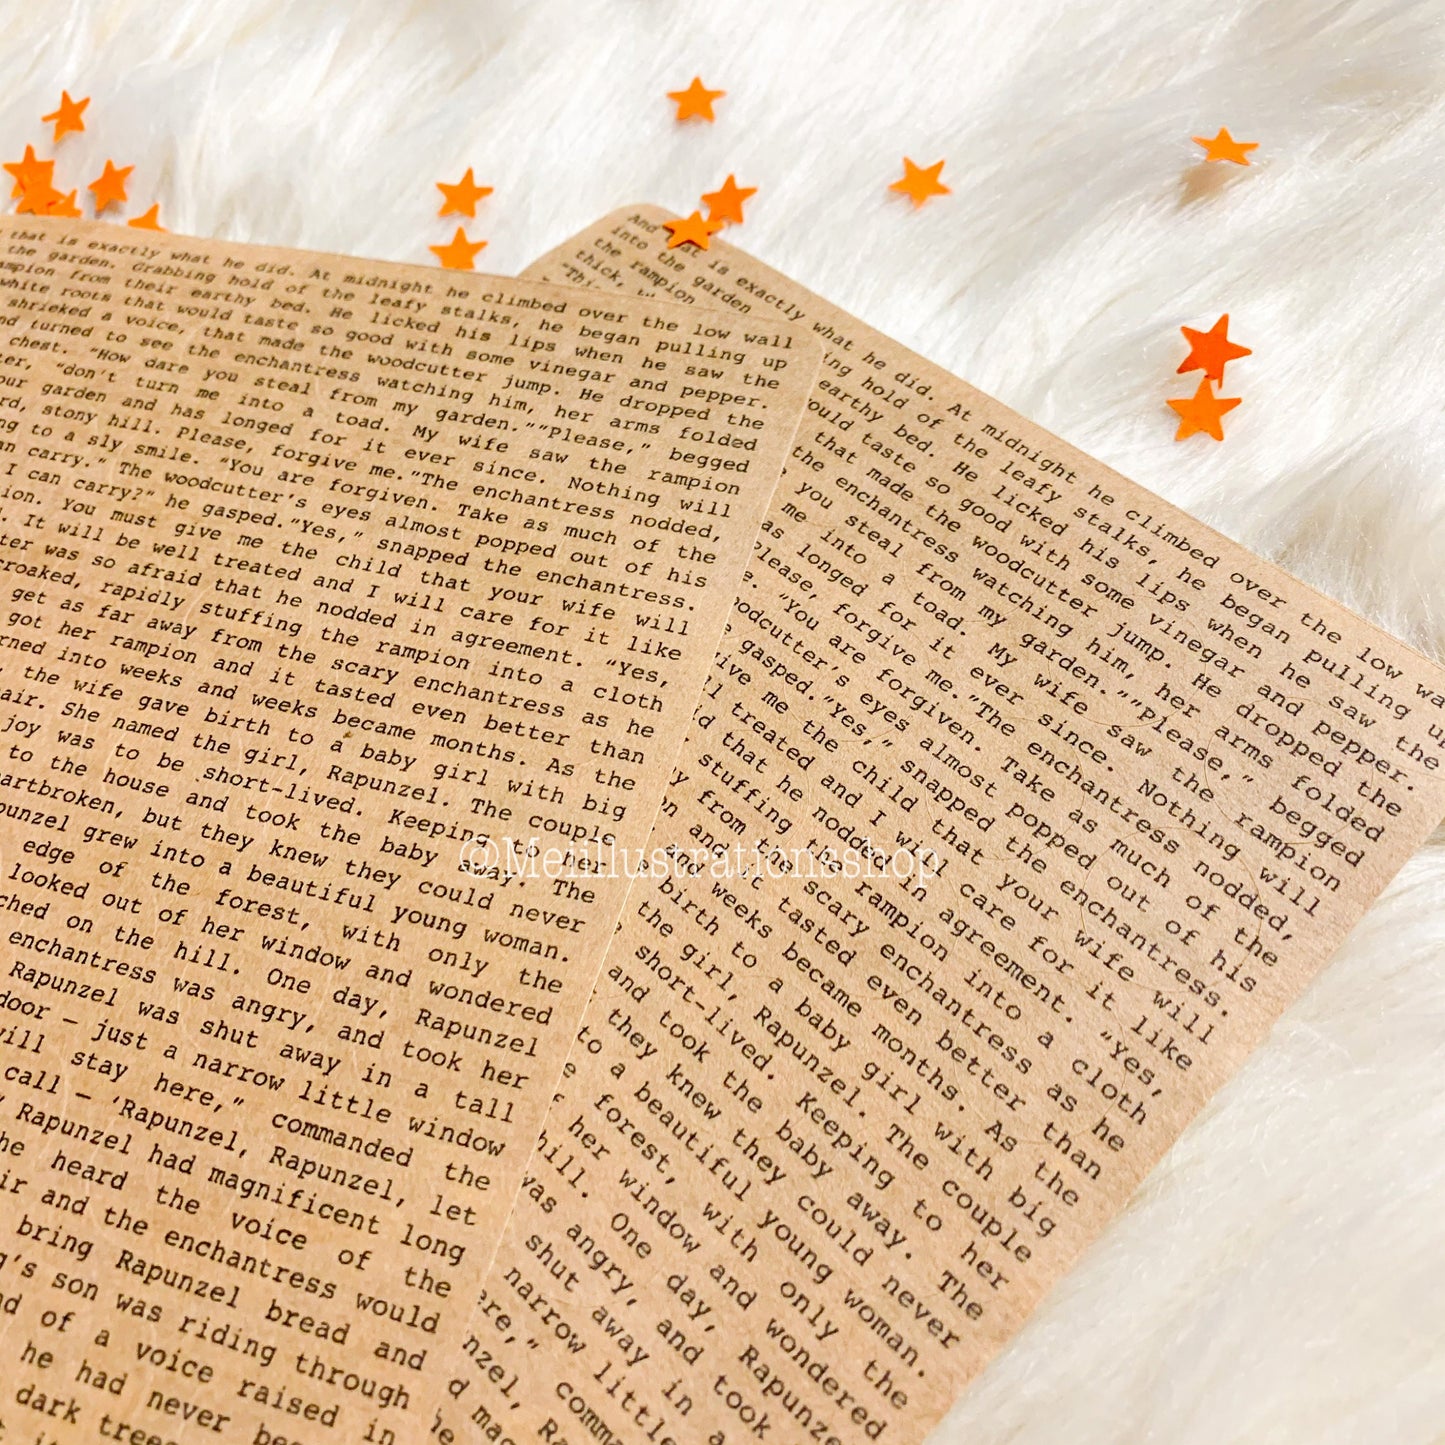 that is exactly what he did. At midnight he climbed over the low wall
the garden. Grabbing hold of the leafy stalks, he began pulling up
from their earthy bed. He licked his lips when he saw the
white roots that would taste so good with some vinegar and pepper.
shrieked a voice, that made the woodcutter jump. He dropped the
turned to see the enchantress watching him, her arms folded
chest. “How dare you steal from my garden.””Please,” begged
“don’t turn me into a toad. My wife saw the rampion
garden and has longed for it ever since. Nothing will
stony hill. Please, forgive me.”The enchantress nodded,
to a sly smile. “You are forgiven. Take as much of the
carry.” The woodcutter’s eyes almost popped out of his
I can carry?” he gasped.”Yes,” snapped the enchantress.
You must give me the child that your wife will
It will be well treated and I will care for it like
was so afraid that he nodded in agreement. “Yes,
croaked, rapidly stuffing the rampion into a cloth
get as far away from the scary enchantress as he
got her rampion and it tasted even better than
into weeks and weeks became months. As the
the wife gave birth to a baby girl with big
She named the girl, Rapunzel. The couple
joy was to be short-lived. Keeping to her
to the house and took the baby away. The
but they knew they could never
grew into a beautiful young woman.
edge of the forest, with only the
looked out of her window and wondered
on the hill. One day, Rapunzel
enchantress was angry, and took her
Rapunzel was shut away in a tall
door – just a narrow little window
stay here,” commanded the
call – ‘Rapunzel, Rapunzel, let
Rapunzel had magnificent long
heard the voice of the
and the enchantress would
bring Rapunzel bread and
son was riding through
of a voice raised in
he had never
dark
And that is exactly what he did. At midnight he climbed over the low
into the garden hold of the leafy stalks, he began pulling up
the rampion earthy bed. He licked his lips when he saw the
thick, taste so good with some vinegar and pepper.
that made the woodcutter jump. He dropped the
the enchantress watching him, her arms folded
you steal from my garden.””Please,” begged
me into a toad. My wife saw the rampion
longed for it ever since. Nothing will
Please, forgive me.”The enchantress nodded,
“You are forgiven. Take as much of the
eyes almost popped out of his
gasped.”Yes,” snapped the enchantress.
me the child that your wife will
treated and I will care for it like
that he nodded in agreement. “Yes,
stuffing the rampion into a cloth
from the scary enchantress as he
and it tasted even better than
and weeks became months. As the
birth to a baby girl with big
the girl, Rapunzel. The couple
short-lived. Keeping to her
and took the baby away. The
they knew they could never
to a beautiful young woman.
forest, with only the
her window and wondered
hill. One day,
was angry, and took
shut away in a
narrow little
©Meiillustrationsshop